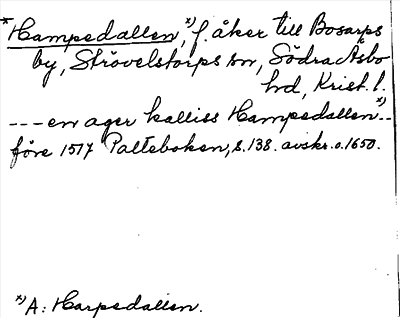 *Hampsdallen *) f. åker till Bosarps
by, Strövelstorps sn, Södra Åsbo
hd, Krist. l.
--- en ager kalliss Hampsdallen *) --
före 1517 Palteboken, s. 138. avskr. o. 1650.
*) A: Harpsdallen.